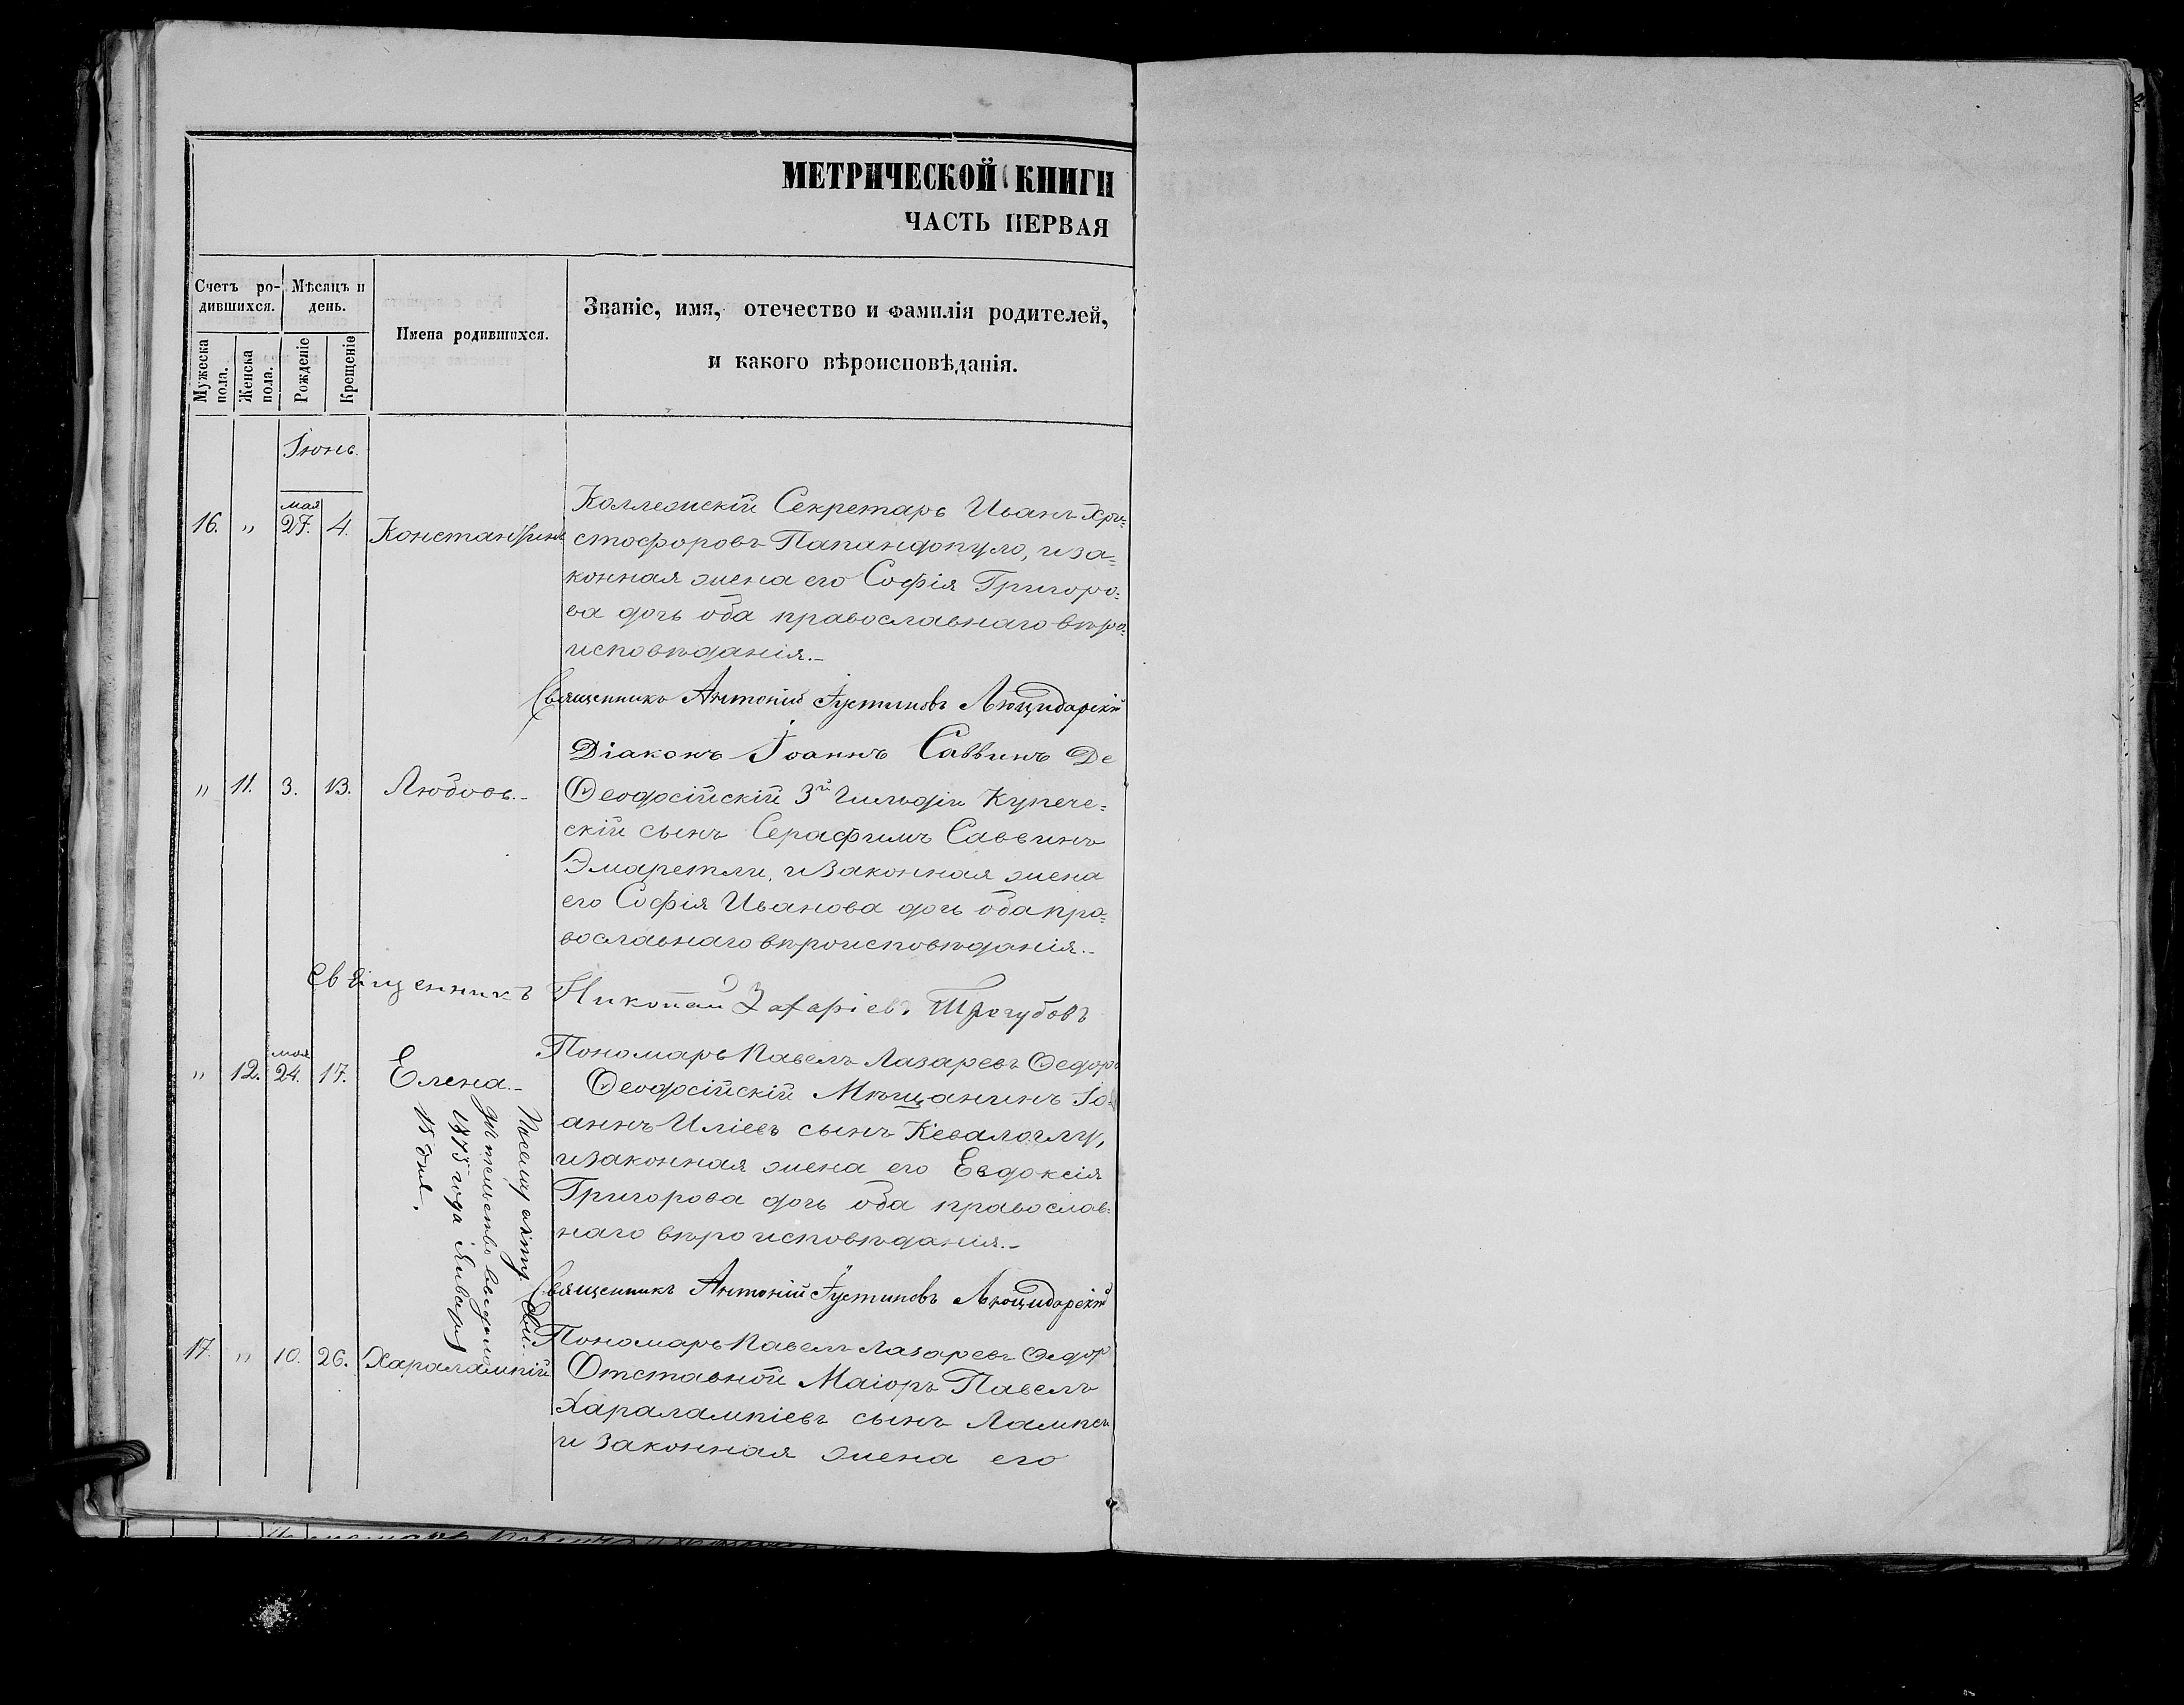 МЕТРИЧЕСКОЙ КНИГИ
ЧАСТЬ ПЕРВАЯ
Счетъ ро-
дившихся.
Мѣсяцъ и
день.
Мужеска
пола.
Женска
пола.
Рожденіе
Крещеніе
Имена родившихся.
Званіе, имя, отечество и фамилія родителей,
и какого вѣроисповѣданія.
Іюнь.
16. " мая 27. 4. Константинъ
Коллежскій Секретарь Иванъ Хри=
стофоровъ Папандопуло, и за=
конная жена его Софія Григоро=
ва дочь оба православнаго вѣро=
исповѣданія.-
Священникъ Антоній Іустиновъ Люцидарскій
Діаконъ Іоаннъ Саввинъ Де
" 11. 3. 13. Любовь.-
Ѳеодосійскій 3й Гильдіи Купече=
скій сынъ Серафимъ Саввинъ
Эмаретли, и законная жена
его Софія Иванова дочь оба пра=
вославнаго вѣроисповѣданія.-
Священникъ Николай Захаріевъ Трегубовъ
Пономарь Павелъ Лазаревъ Ѳедоръ
" 12. мая 24. 17. Елена.-
Ѳеодосійскій Мѣщанинъ Іо-
аннъ Иліевъ сынъ Кевалоглу,
и законная жена его Евдоксія
Григорова дочь оба православ=
наго вѣроисповѣданія.-
По сему акту Сви-
дѣтельство выдано
1875 года Января
15 дня.
Священникъ Антоній Іустиновъ Люцидарскій
Пономарь Павелъ Лазаревъ Ѳедор
17. " 10. 26. Харалампій
Отставной Маіоръ Павелъ
Харалампіевъ сынъ
и законная жена его